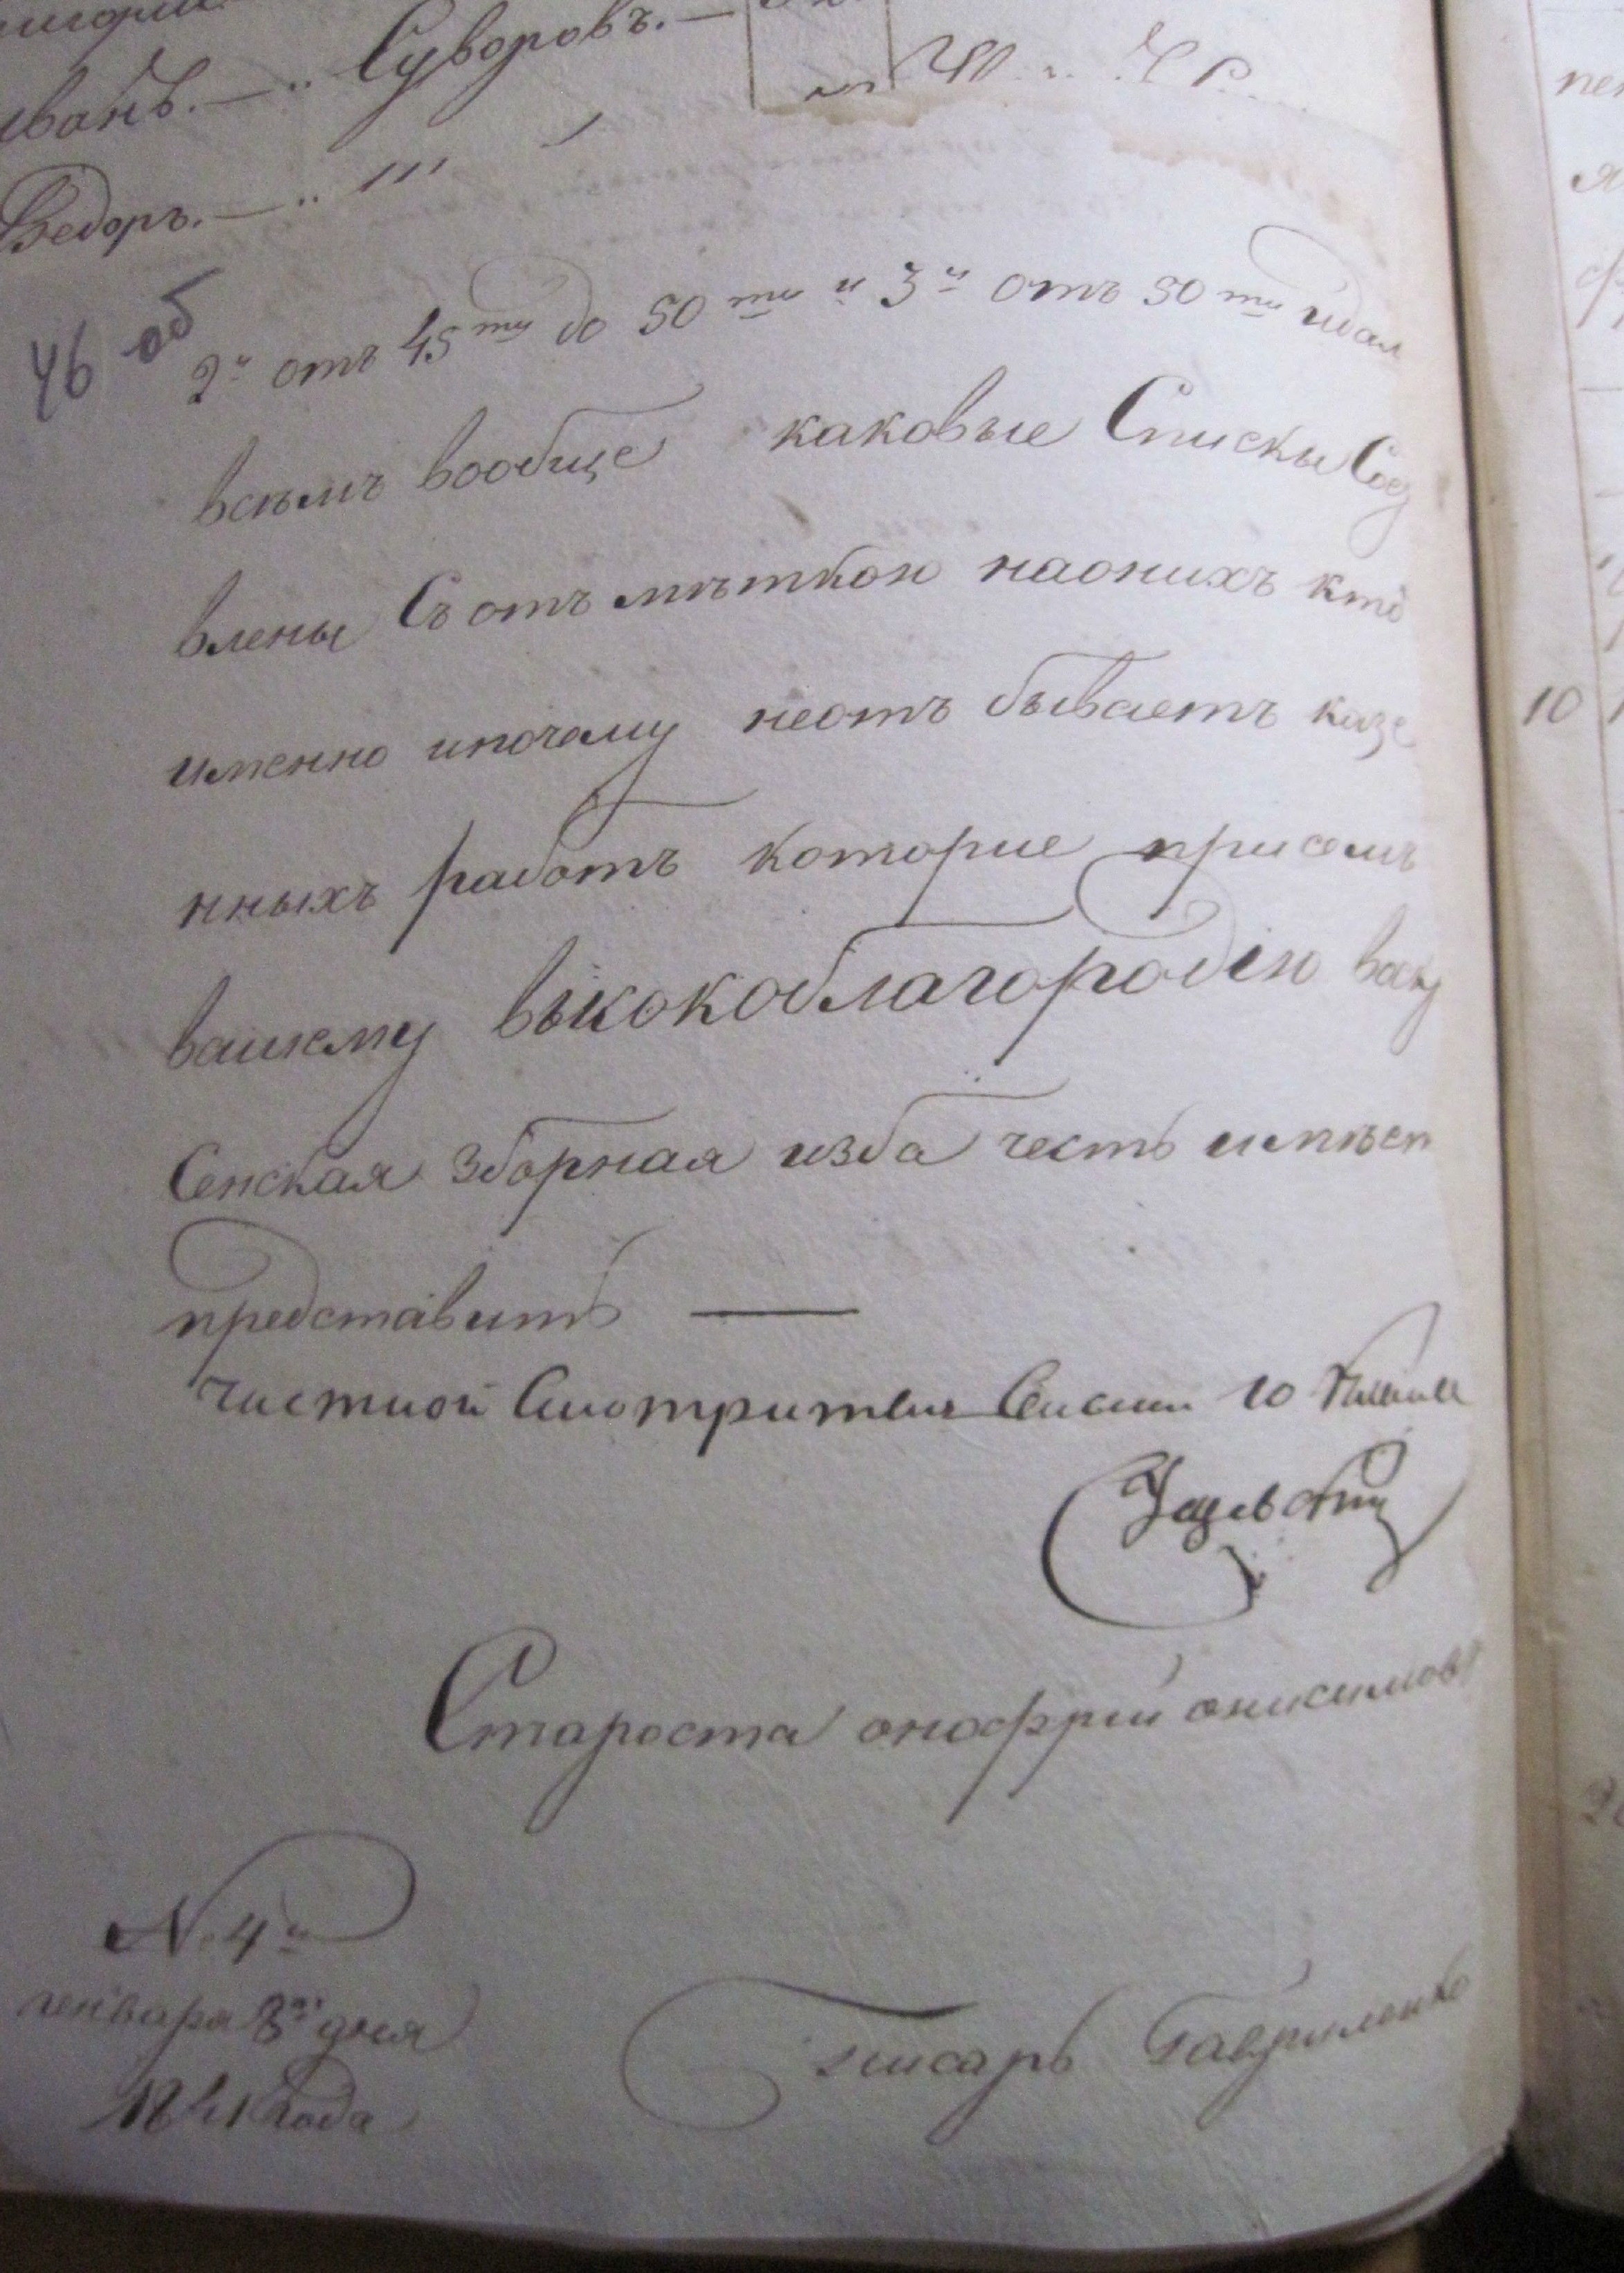 Иванъ. — " Суворовъ. —
Ѳедоръ. — " "'
46 об
2й отъ 45ти до 50ти и 3й отъ 50ти идал
всѣмъ вообще каковые Списки Сос
влены Съ отъ мѣткою наонихъ кто
именно ипочему неотъ бываетъ казе
нныхъ работъ которие присемъ
вашему выкокоблагородію возн
Сенская зборная изба честь имѣет
представить —
частной Смотритель 10
Староста онофрій онисимовъ
№ 4й
генваря 8го дня
1841 года
писарь Гавриленко
10